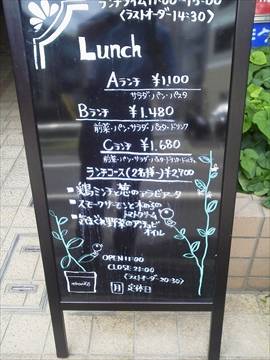 ランチタイム11:00~15:00
<ラストオーダー14:30>
Lunch
Aランチ ¥1,100
サラダ・パン・パスタ
Bランチ ¥1,480
前菜・パン・サラダ・パスタ・ドリンク
Cランチ ¥1,680
前菜・パン・サラダ・パスタ・ドリンク・ドルチェ
ランチコース(2名様~)¥2,700
・鶏ミンチと葱のアラビアータ
・スモークサーモンと
トマトクリーム
野菜の
オイル
OPEN 11:00
CLOSE 21:00
<ラストオーダー20:30>
月 定休日